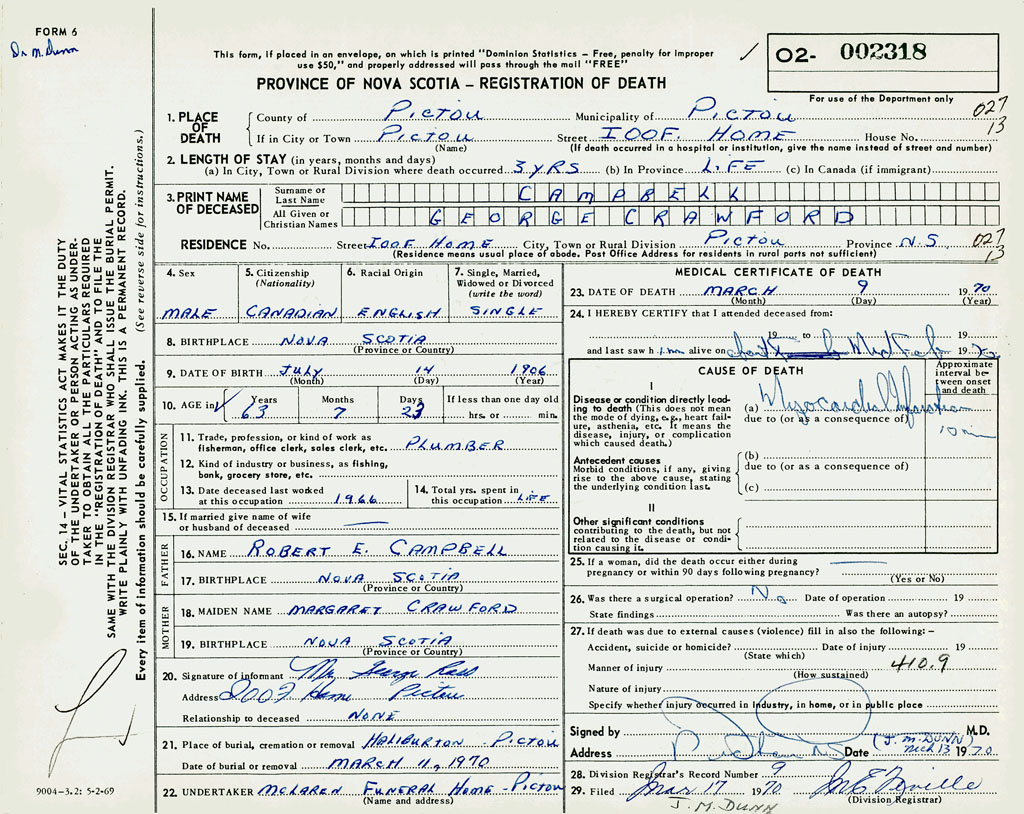 FORM 6
Dr M. Dunn
This form, if placed in an envelope, on which is printed "Dominion Statistics – Free, penalty for improper
use $50," and properly addressed will pass through the mail "FREE"
02- 002318
PROVINCE OF NOVA SCOTIA – REGISTRATION OF DEATH
For use of the Department only
1. PLACE OF DEATH
County of PICTOU Municipality of PICTOU 027
If in City or Town PICTOU Street IOOF. HOME House No. 13
(Name) (If death occurred in a hospital or institution, give the name instead of street and number)
2. LENGTH OF STAY (in years, months and days)
(a) In City, Town or Rural Division where death occurred 3 YRS (b) In Province LIFE (c) In Canada (if immigrant)
3. PRINT NAME OF DECEASED
Surname or Last Name CAMPBELL
All Given or Christian Names GEORGE CRAWFORD
RESIDENCE No. Street IOOF HOME City, Town or Rural Division PICTOU Province N.S. 027
(Residence means usual place of abode. Post Office Address for residents in rural parts not sufficient) 13
4. Sex MALE
5. Citizenship (Nationality) CANADIAN
6. Racial Origin ENGLISH
7. Single, Married, Widowed or Divorced (write the word) SINGLE
8. BIRTHPLACE NOVA SCOTIA
(Province or Country)
9. DATE OF BIRTH JULY 14 1906
(Month) (Day) (Year)
10. AGE in Years 63 Months 7 Days 23 If less than one day old hrs. or min.
OCCUPATION
11. Trade, profession, or kind of work as
fisherman, office clerk, sales clerk, etc. PLUMBER
12. Kind of industry or business, as fishing,
bank, grocery store, etc.
13. Date deceased last worked
at this occupation 1966
14. Total yrs. spent in
this occupation LIFE
15. If married give name of wife
or husband of deceased
FATHER
16. NAME ROBERT E. CAMPBELL
17. BIRTHPLACE NOVA SCOTIA
(Province or Country)
MOTHER
18. MAIDEN NAME MARGARET CRAWFORD
19. BIRTHPLACE NOVA SCOTIA
(Province or Country)
20. Signature of informant Mr. George Ross
Address IOOF Home Pictou
Relationship to deceased NONE
21. Place of burial, cremation or removal HALIBURTON - PICTOU
Date of burial or removal MARCH 11, 1970
22. UNDERTAKER MCLAREN FUNERAL HOME - PICTOU
(Name and address)
MEDICAL CERTIFICATE OF DEATH
23. DATE OF DEATH MARCH 9 1970
(Month) (Day) (Year)
24. I HEREBY CERTIFY that I attended deceased from:
19 to 19
and last saw him alive on 19
CAUSE OF DEATH
Approximate interval between onset and death
I
Disease or condition directly leading
to death (This does not mean
the mode of dying, e.g., heart failure,
asthenia, etc. It means the
disease, injury, or complication
which caused death.)
(a) Myocardial Infarction
due to (or as a consequence of)
10 min
Antecedent causes
Morbid conditions, if any, giving
rise to the above cause, stating
the underlying condition last.
(b)
due to (or as a consequence of)
(c)
II
Other significant conditions
contributing to the death, but not
related to the disease or condition
causing it.
25. If a woman, did the death occur either during
pregnancy or within 90 days following pregnancy?
(Yes or No)
26. Was there a surgical operation? No Date of operation 19
State findings Was there an autopsy?
27. If death was due to external causes (violence) fill in also the following: –
Accident, suicide or homicide? Date of injury 19
(State which)
Manner of injury 410.9
(How sustained)
Nature of injury
Specify whether injury occurred in industry, in home, or in public place
Signed by M.D.
(J. M. DUNN)
Address Date MCH 13 1970
28. Division Registrar's Record Number 9
29. Filed Mar 17 1970
(Division Registrar)
J. M. DUNN
SEC. 14 – VITAL STATISTICS ACT MAKES IT THE DUTY
OF THE UNDERTAKER OR PERSON ACTING AS UNDERTAKER
TO OBTAIN ALL THE PARTICULARS REQUIRED
IN THE "REGISTRATION OF DEATH" AND TO FILE THE
SAME WITH THE DIVISION REGISTRAR WHO SHALL ISSUE THE BURIAL PERMIT.
WRITE PLAINLY WITH UNFADING INK. THIS IS A PERMANENT RECORD.
Every item of information should be carefully supplied. (See reverse side for instructions.)
9004-3.2: 5-2-69